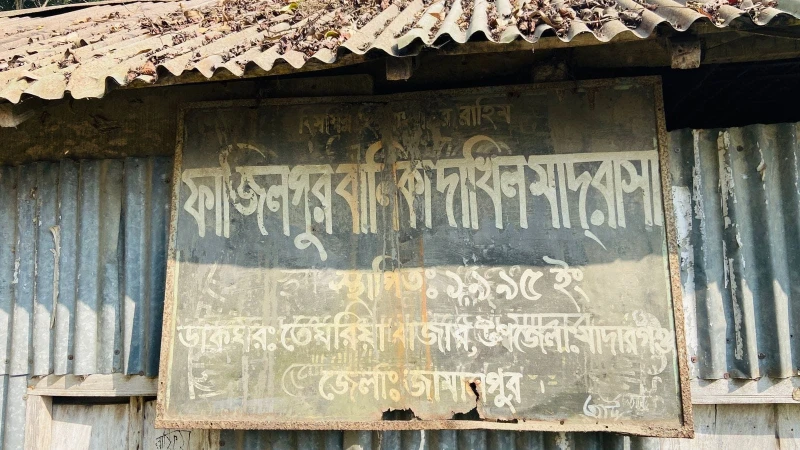 রাহিম
ফাজিলপুর বালিকা দাখিল মাদ্রাসা
স্থাপিতঃ ১৯৯৫ ইং
ডাকঘরঃ তেঘরিয়া বাজার, উপজেলাঃ মাদারগঞ্জ
জেলাঃ জামালপুর